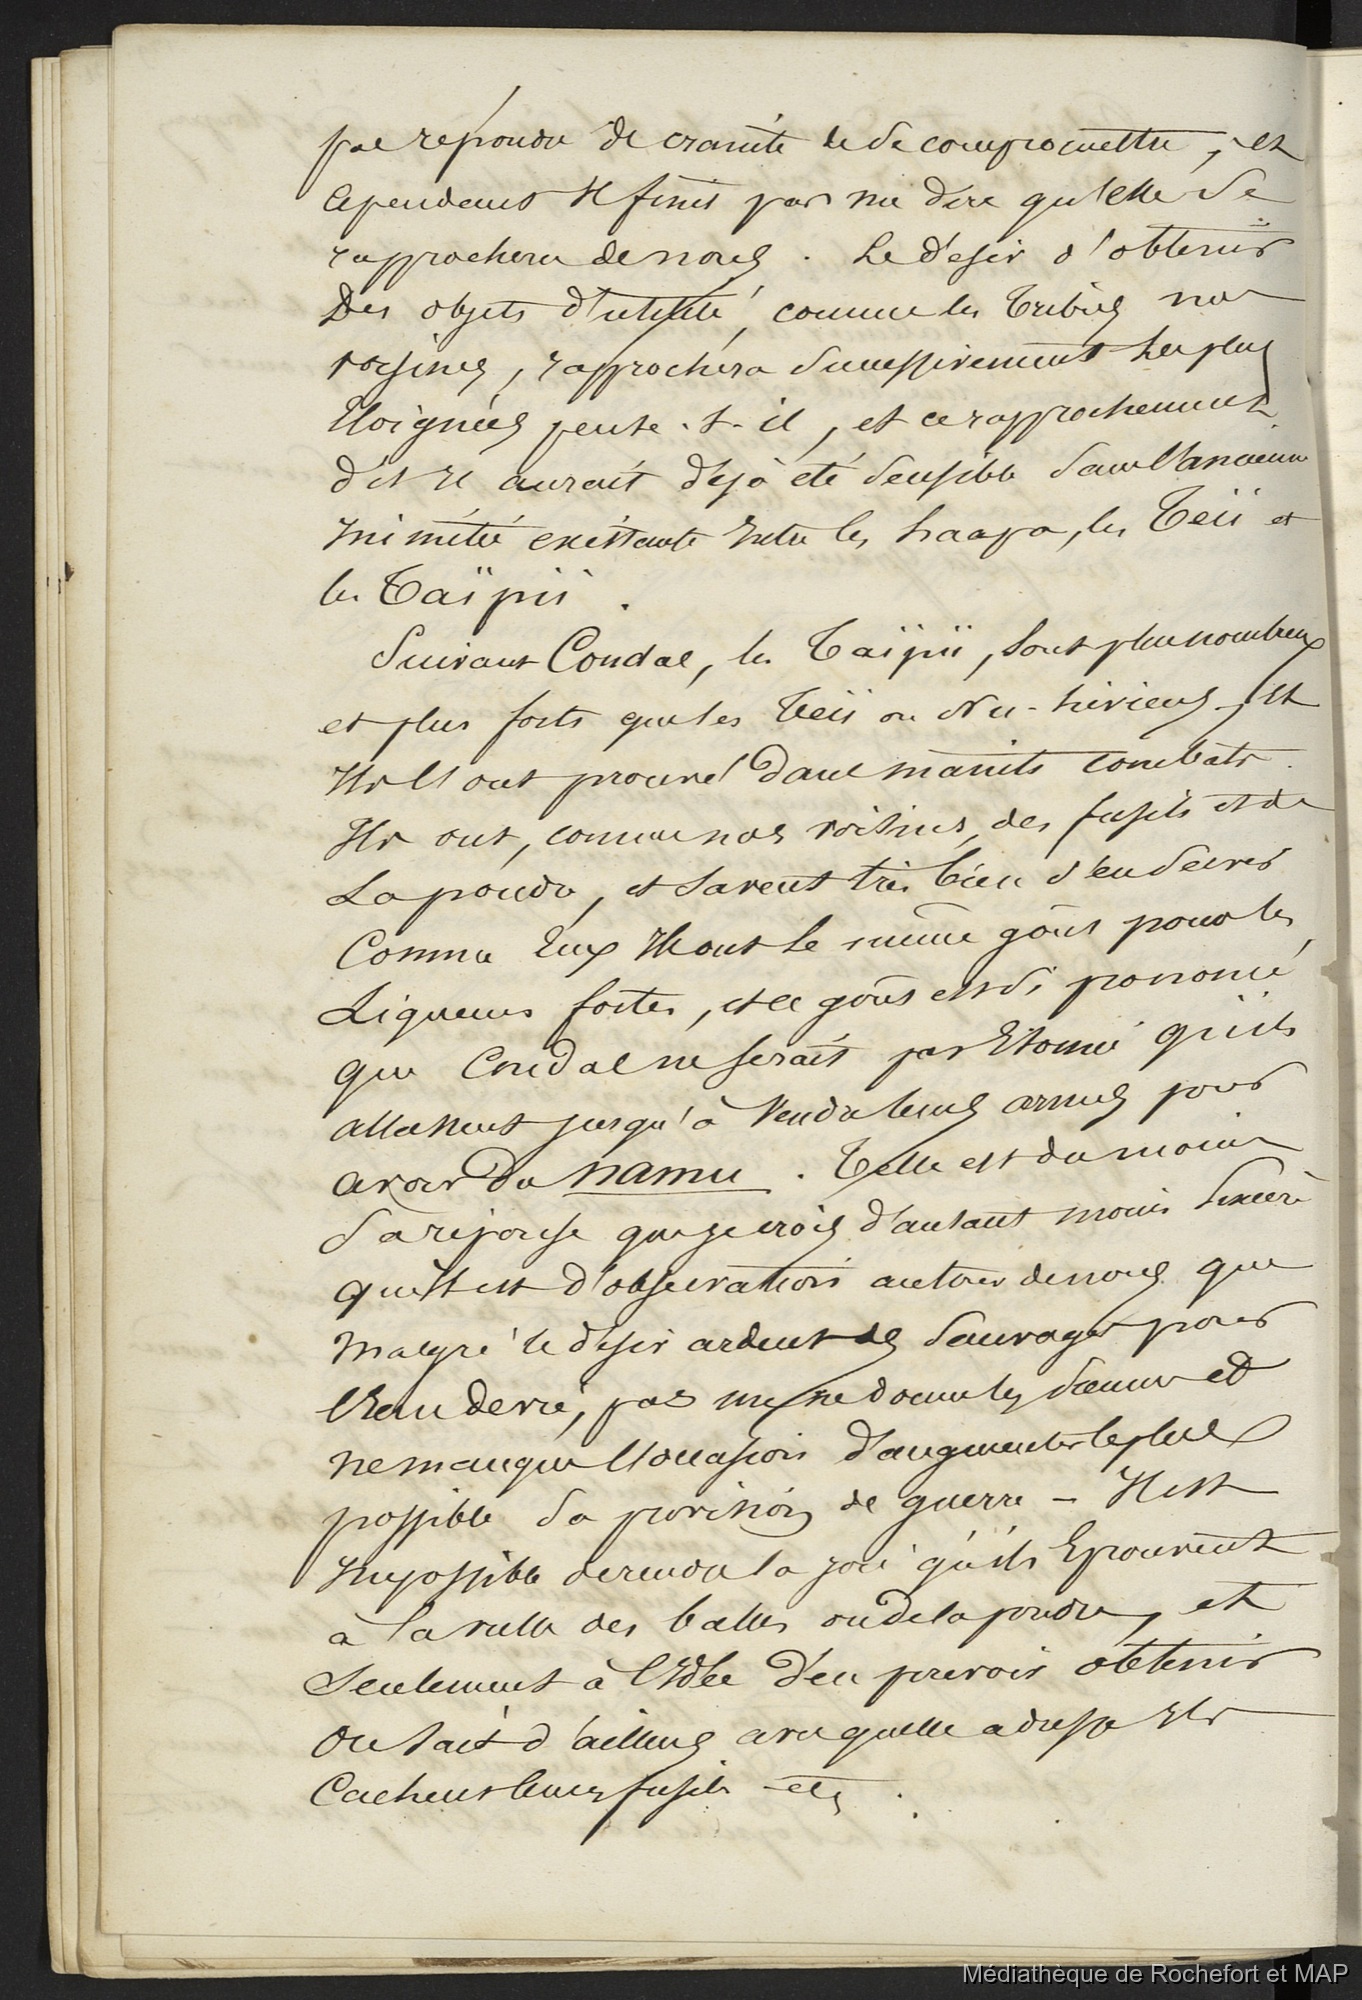 pas répondre de crainte de se compromettre, et
cependant il finit par me dire qu'elle se
rapprochera de nous. Le désir d'obtenir
des objets d'utilité, comme les tribus nos
voisines, rapprochera successivement les plus
éloignées pense-t-il, et ce rapprochement
dit il aurait déjà été sensible sans l'ancienne
inimitié existante entre les haapa, les Teïi et
les Taïpii.
Suivant Condal, les Taïpii, sont plus nombreux
et plus forts que les Teïi ou Nu-hiviens, et
ils l'ont prouvé dans maints combats.
Ils ont, comme nos voisines, des fusils et de
la poudre, et savent très bien s'en servir
Comme eux ils ont le même goût pour les
liqueurs fortes, et ce goût est si prononcé
que Condal ne serait pas étonné qu'ils
allassent jusqu'à vendre leurs armes pour
avoir du namu. Telle est du moins
sa réponse que je crois d'autant moins sincère
qu'il est d'observation autour de nous que
malgré le désir ardent des sauvages pour
l'eau de vie, pas un ne donne les siennes et
ne manque l'occasion d'augmenter le plus
possible sa provision de guerre - Il est
impossible de rendre la joie qu'ils éprouvent
à la vue des balles ou de la poudre, et
seulement à l'idée d'en pouvoir obtenir
on sait d'ailleurs avec quelle adresse ils
cachent leurs fusils etc.
Médiathèque de Rochefort et MAP